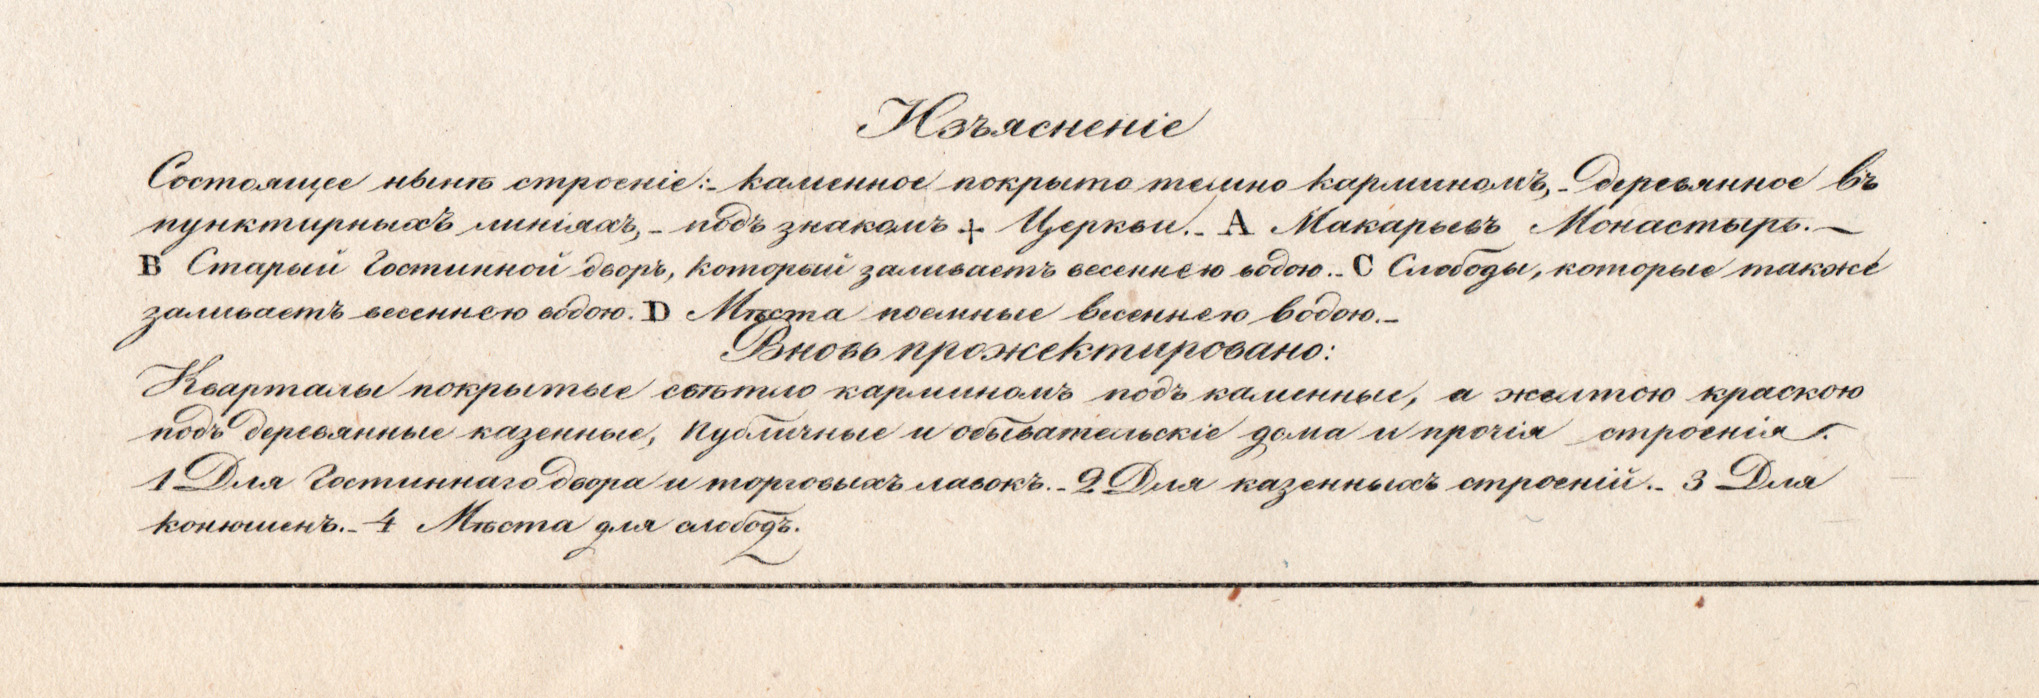 Изъясненіе
Состоящее нынѣ строеніе:- каменное покрыто темно карминомъ,- деревянное въ
пунктирныхъ линіяхъ,- подъ знакомъ + Церкви.- А Макарьевъ Монастырь.-
В Старый Гостинной дворъ, который заливаетъ весеннею водою.- С Слободы, которые также
заливаетъ весеннею водою. D Мѣста поемные весеннею водою.-
Вновь прожектировано:
Кварталы покрытые свѣтло карминомъ подъ каменные, а желтою краскою
подъ деревянные казенные, публичные и обывательскіе дома и прочія строенія.
1 Для Гостиннаго двора и торговыхъ лавокъ.- 2 Для казенныхъ строеній.- 3 Для
конюшенъ.- 4 Мѣста для слободъ.